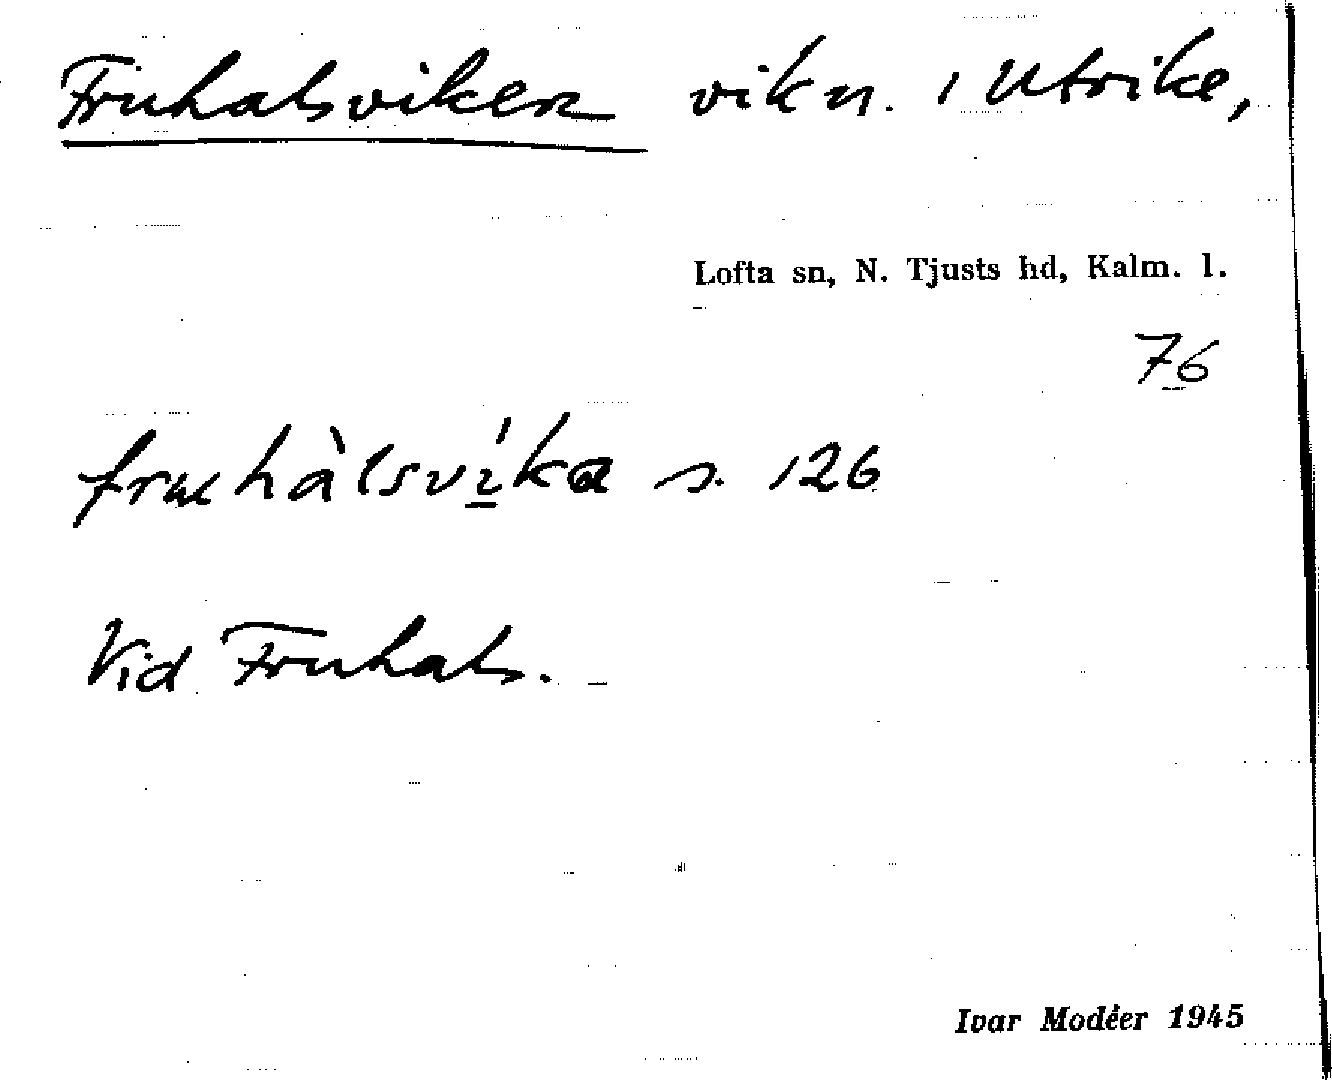 Fruhalsviken vikn. i Utrike,
Lofta sn, N. Tjusts hd, Kalm. l.
76
fruhàlsví̲ka s. 126
Vid Fruhals.
Ivar Modéer 1945